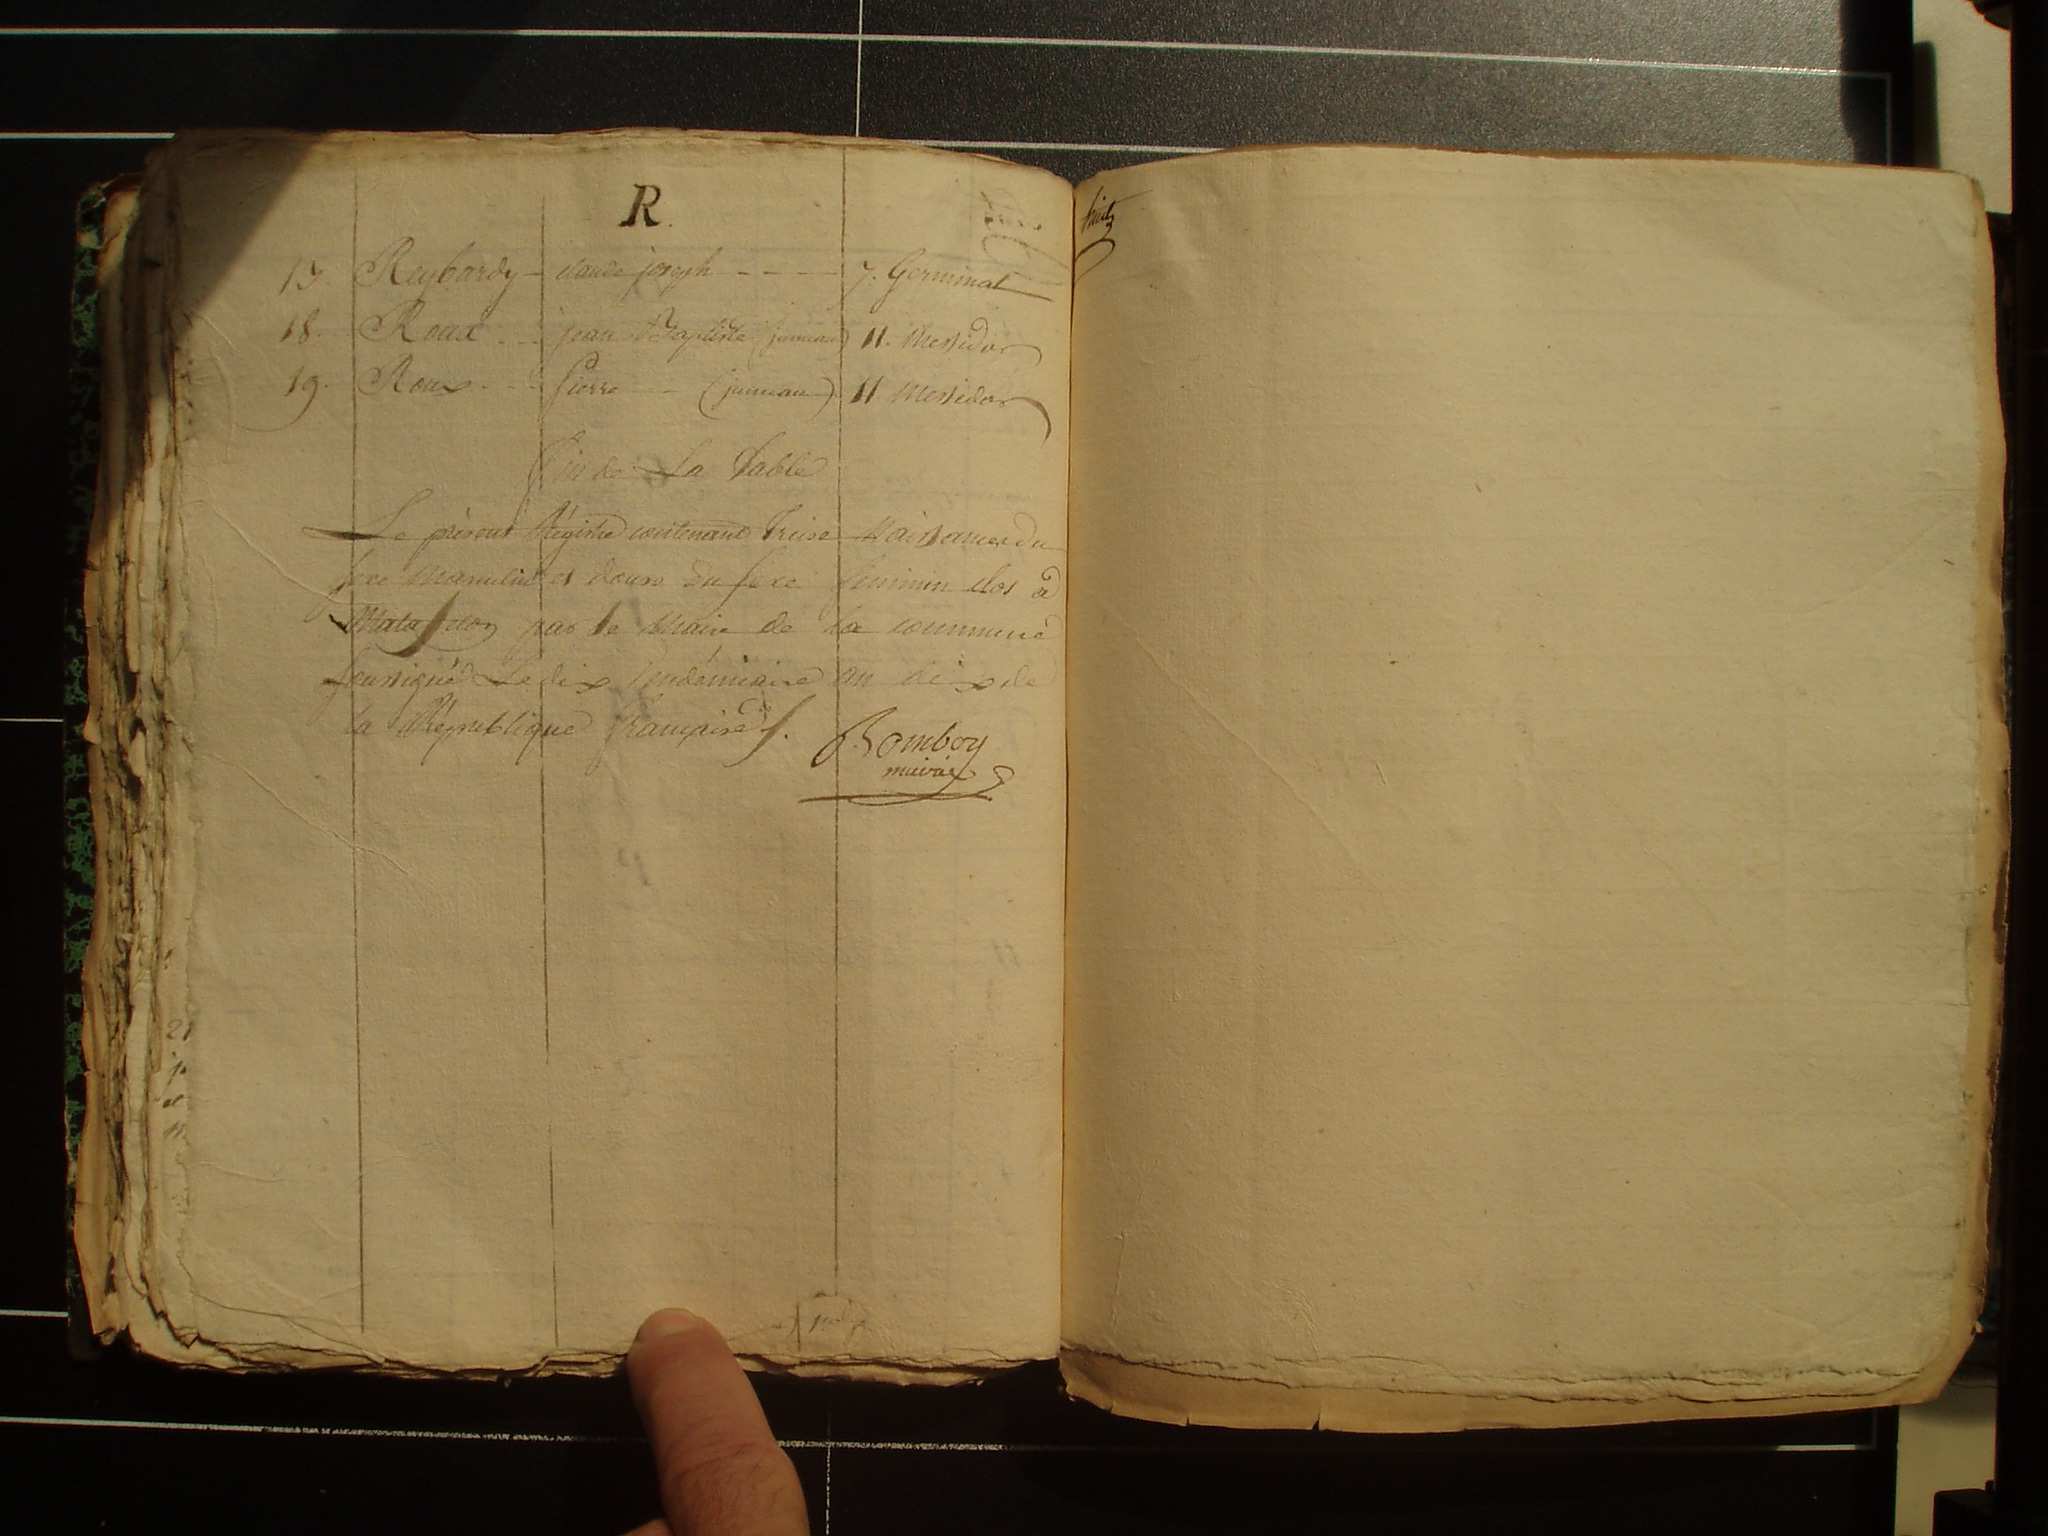 R.
17. Reybardy - claude joseph - - - 7. Germinal
18. Roux - - jean Baptiste (jumeau) 11. Messidor
19. Roux - - Pierre - (jumeau) 11 Messidor
Fin de La Table
Le présent Régistre contenant Treize Naissances du
sexe Masculin et douze du sexe feminin clos à
Matafelon par le Maire de la commune
soussigné Le dix Vendémiaire an dix de
la République française /.
Bomboy
maire
huit